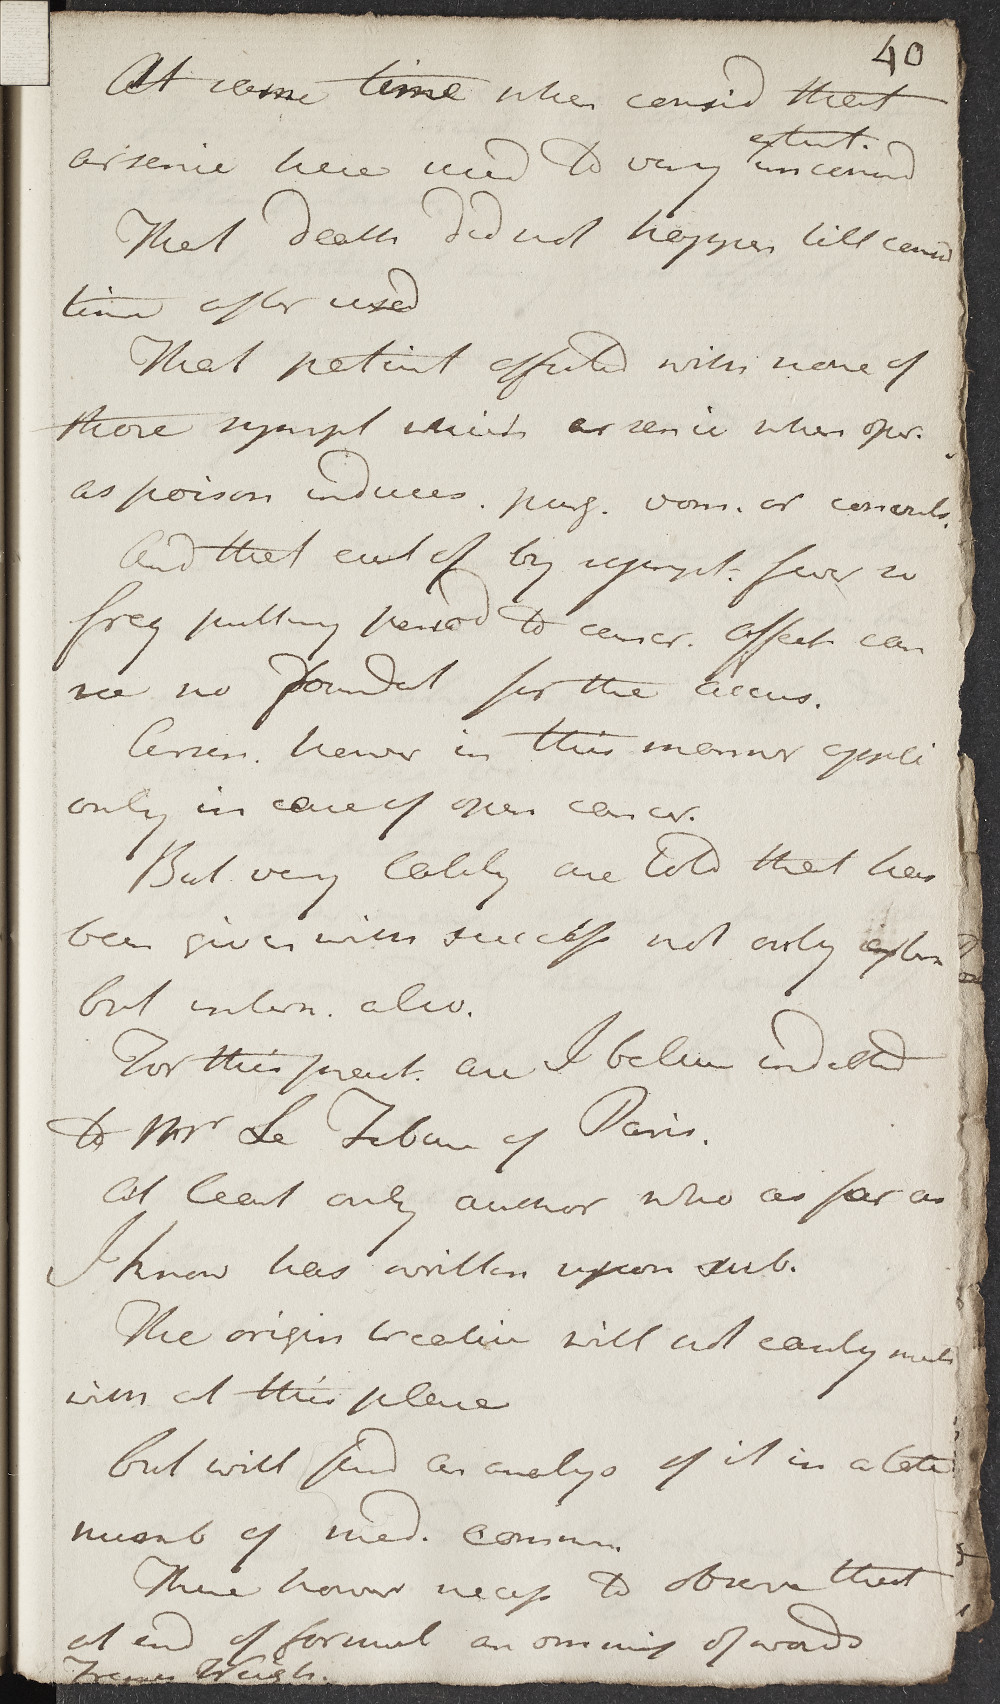 40
At same time when consid that
extent.
arsenic here used to very inconsid
That death did not happen till consid
time after used
That patient affected with none of
those sympt which arsenic when oper.
as poison induces. purg. vom. or convuls.
And that cut of by sympt. fever so
freq putting period to cancr. affect can
see no foundat for the accus.
Arsen. hower in this manner appli
only in case of open cancer.
But very lately are told that has
been given with success not only extern
but intern. also.
For this pract. are I believe indebted
to Mr Le Febure of Paris.
At least only author who as far as
I know has written upon sub.
The origin treatise will not easily meet
with at this place
but will find an analys of it in a late
numb of med. comm.
There hower necess to observe that
at end of formul an omimiss of words